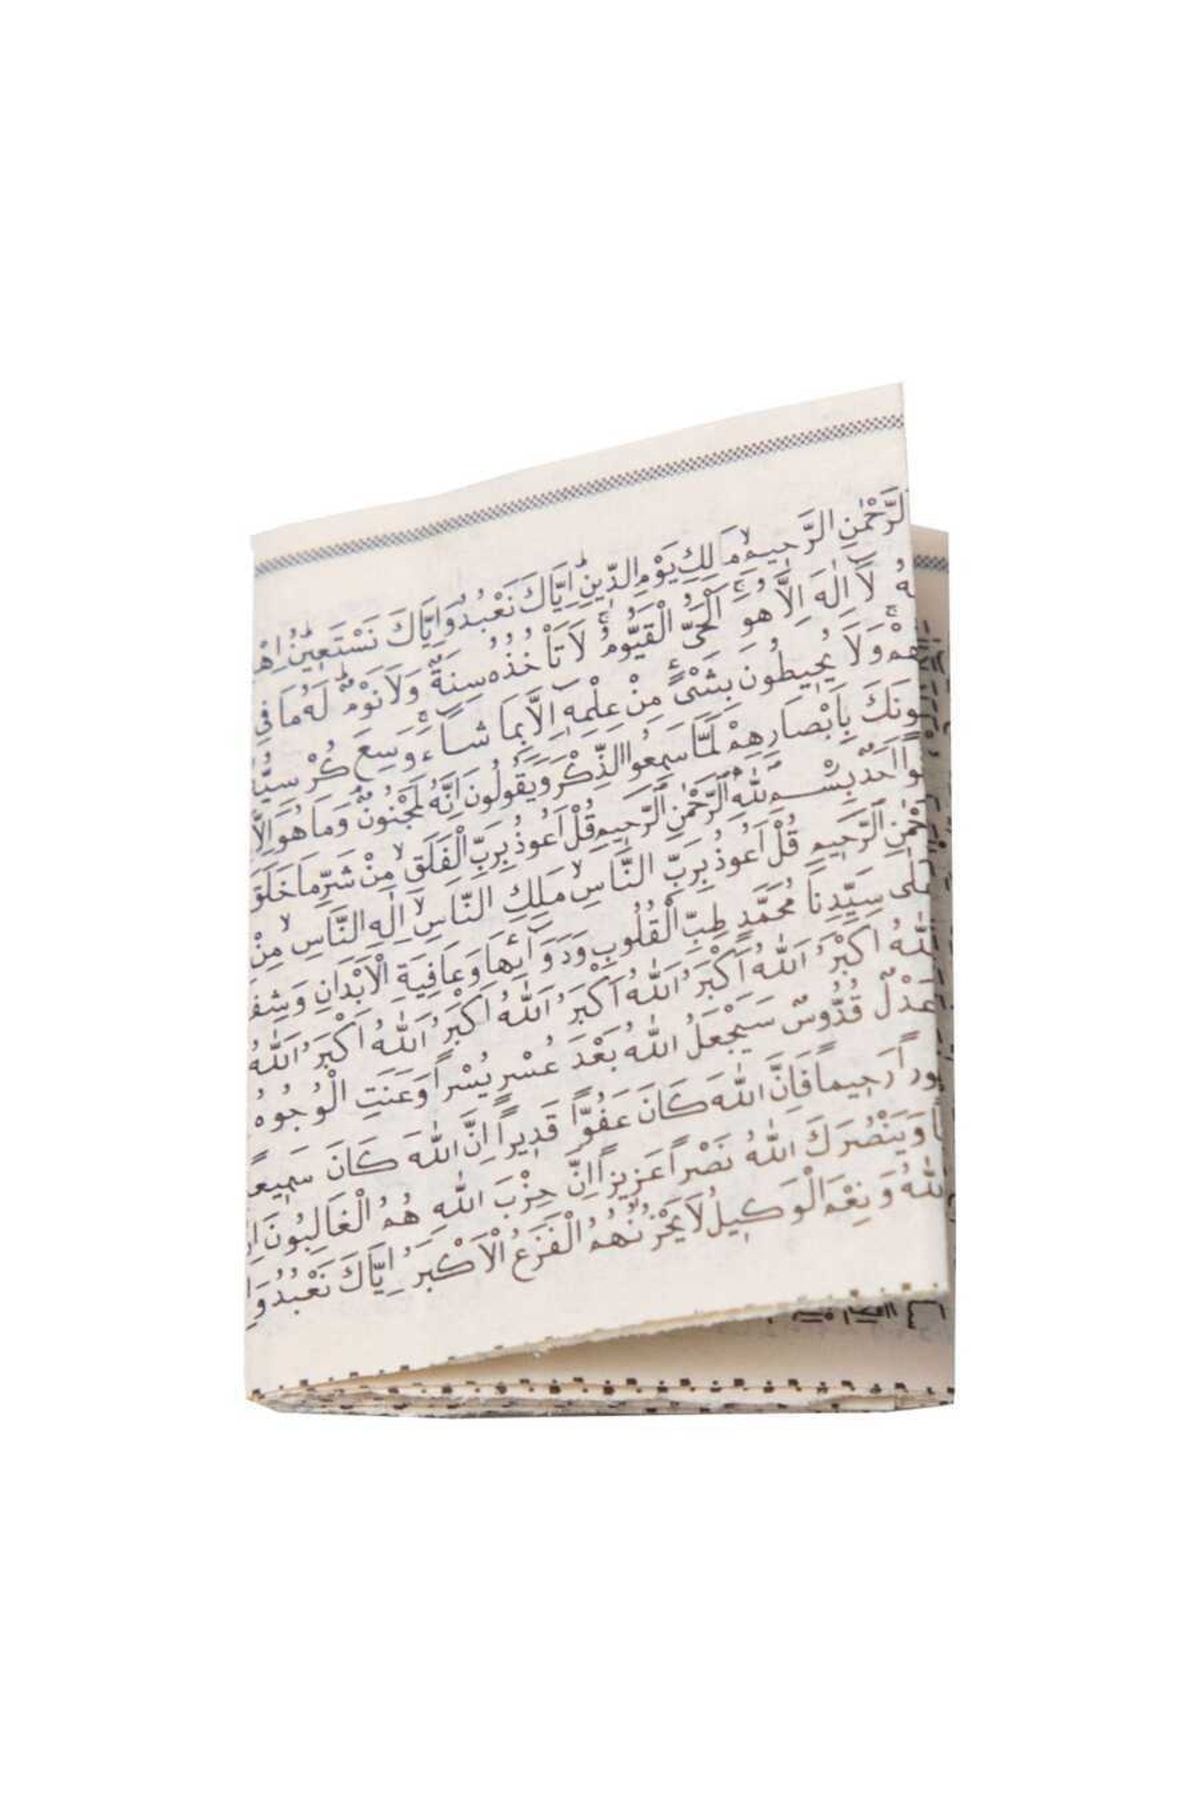 الرَّحْمٰنِ الرَّحِيمِ مَالِكِ يَوْمِ الدِّينِ اِيَّاكَ نَعْبُدُ وَاِيَّاكَ نَسْتَعِينُ
لَا اِلٰهَ اِلَّا هُوَ اَلْحَىُّ الْقَيُّومُ لَا تَأْخُذُهُ سِنَةٌ وَلَا نَوْمٌ لَهُ مَا فِى
وَلَا يُحِيطُونَ بِشَىْءٍ مِنْ عِلْمِهِ اِلَّا بِمَا شَاءَ وَسِعَ كُرْسِيُّ
بِاَبْصَارِهِمْ لَمَّا سَمِعُوا الذِّكْرَ وَيَقُولُونَ اِنَّهُ لَمَجْنُونٌ وَمَا هُوَ اِلَّا
اَحَدٌ بِسْمِ اللّٰهِ الرَّحْمٰنِ الرَّحِيمِ قُلْ اَعُوذُ بِرَبِّ الْفَلَقِ مِنْ شَرِّ مَا خَلَقَ
الرَّحِيمِ قُلْ اَعُوذُ بِرَبِّ النَّاسِ مَلِكِ النَّاسِ اِلٰهِ النَّاسِ مِنْ
سَيِّدِنَا مُحَمَّدٍ طِبِّ الْقُلُوبِ وَدَوَائِهَا وَعَافِيَةِ الْاَبْدَانِ
اَللّٰهُ اَكْبَرُ اَللّٰهُ اَكْبَرُ اَللّٰهُ اَكْبَرُ اَللّٰهُ اَكْبَرُ اَللّٰهُ اَكْبَرُ اَللّٰهُ
عَدْلٌ قُدُّوسٌ سَيَجْعَلُ اللّٰهُ بَعْدَ عُسْرٍ يُسْرًا وَعَنَتِ الْوُجُوهُ
رَحِيمًا فَاِنَّ اللّٰهَ كَانَ عَفُوًّا قَدِيرًا اِنَّ اللّٰهَ كَانَ
وَيَنْصُرَكَ اللّٰهُ نَصْرًا عَزِيزًا اِنَّ حِزْبَ اللّٰهِ هُمُ الْغَالِبُونَ
اللّٰهُ وَنِعْمَ الْوَكِيلُ لَا يَحْزُنُهُمُ الْفَزَعُ الْاَكْبَرُ اِيَّاكَ نَعْبُدُ